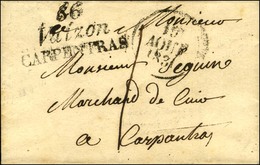 86
Vaizon
CARPENTRAS
19
AOUT
183
Monsieur
Monsieur Jequin
Marchand de Cuir
a Carpentras